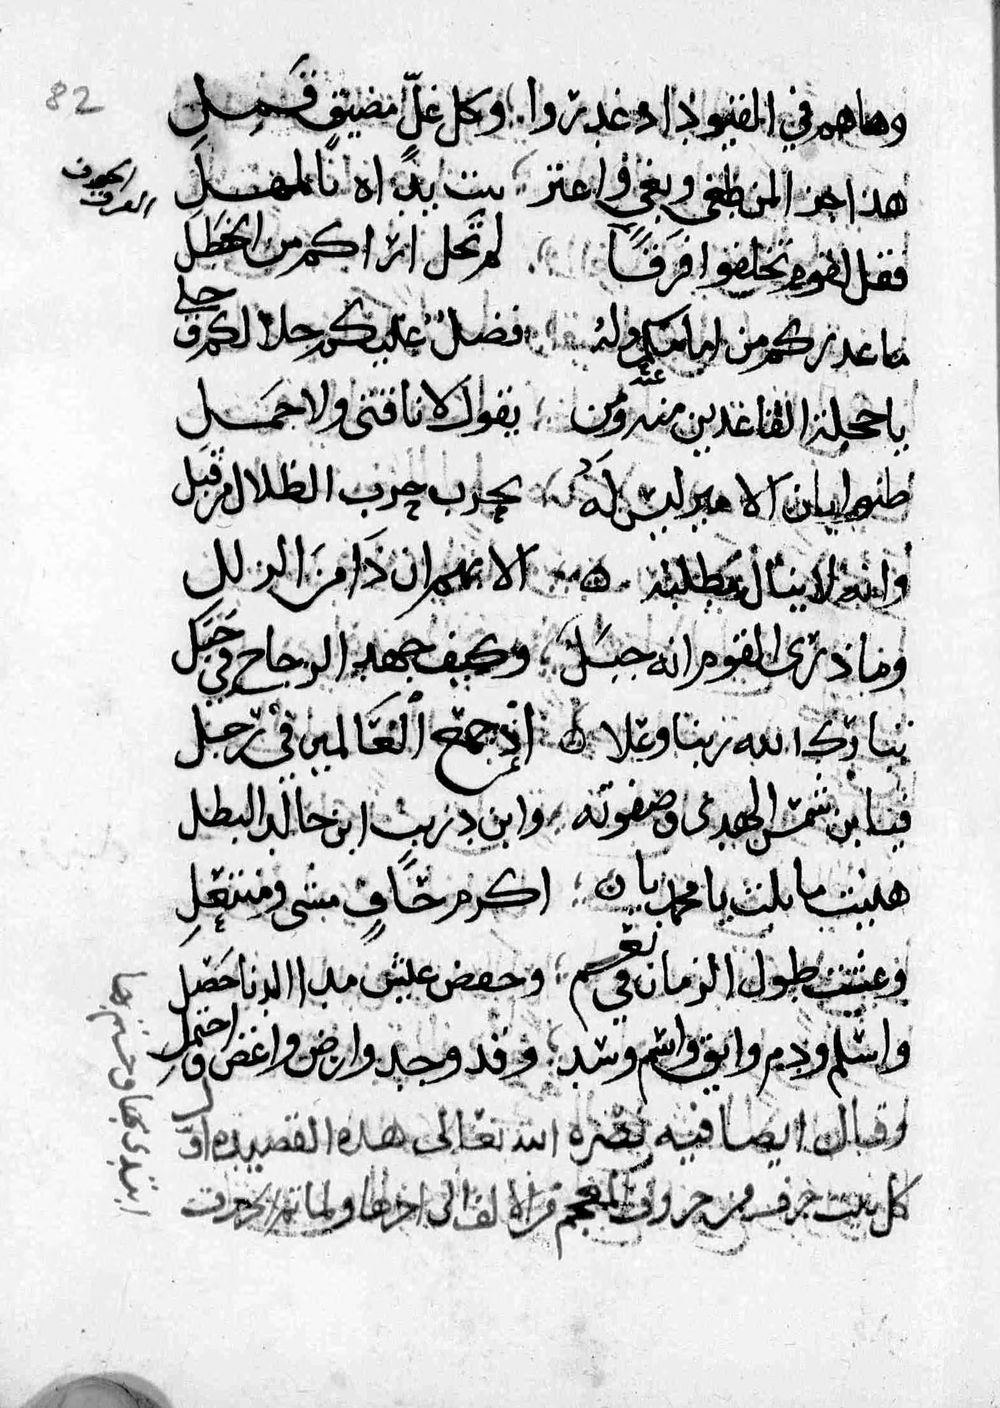 82
وهاهم في القيود اذ غدروا وكل غلّ مضيّق قمل
هذا جزا لمن طغى وبغى واعتز تبت يداه نا المهل
فقل لقوم تخلفوا فرقًا لم تحل اراكم من الخطل
ما عذركم من امامكم وله فضل عليكم حلا لكم وجلي
يا خجلة القاعدين منه ومن عنه يقول لا ناقتى ولا جمل
ظنوا بان الامير ليس له بحرب حرب الظلال من قبل
وانه لا ينال مطلبه الا بهم ان ذا من الزلل
وما درى القوم انه جبل وكيف جهد الزجاج في جبل
تبارك الله ربنا وعلا اذ جمع العالمين في رجل
فيا ابن شمس الهدى وصفوته وابن دريب ابن خالد البطل
هنيت ما نلت يا محمد يا اكرم حافٍ مشى ومنتعل
وعشت طول الزمان في نعم وخفض عيش مدا الدنا خضل
واسلم ودم وابق واسم وسد وقد وجد وارض واغض واحتمل
وقال ايضا فيه نصره الله تعالى هذه القصيدة اول
كل بيت حرف من حروف المعجم من الالف الى اخرها ولها تمام الحروف
ابتدى بها وختم بها